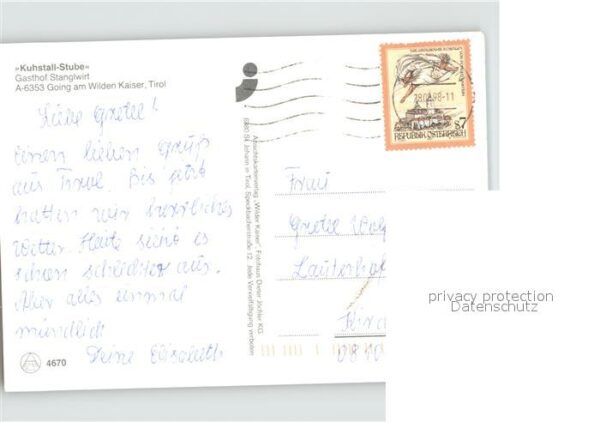 »Kuhstall-Stube«
Gasthof Stanglwirt
A-6353 Going am Wilden Kaiser, Tirol
Liebe Gretel!
Einen lieben Gruß
aus Tirol. Bis jetzt
hatten wir herrliches
Wetter. Heute sieht es
schon schlechter aus.
Aber alles einmal
mündlich
Deine Elisabeth
4670
Ansichtskartenverlag „Wilder Kaiser“, Fotohaus Dieter Jöchler KG.
6380 St. Johann in Tirol, Speckbacherstraße 12. Jede Vervielfältigung verboten
98-11
S7
REPUBLIK ÖSTERREICH
Frau
Gretel
privacy protection
Datenschutz